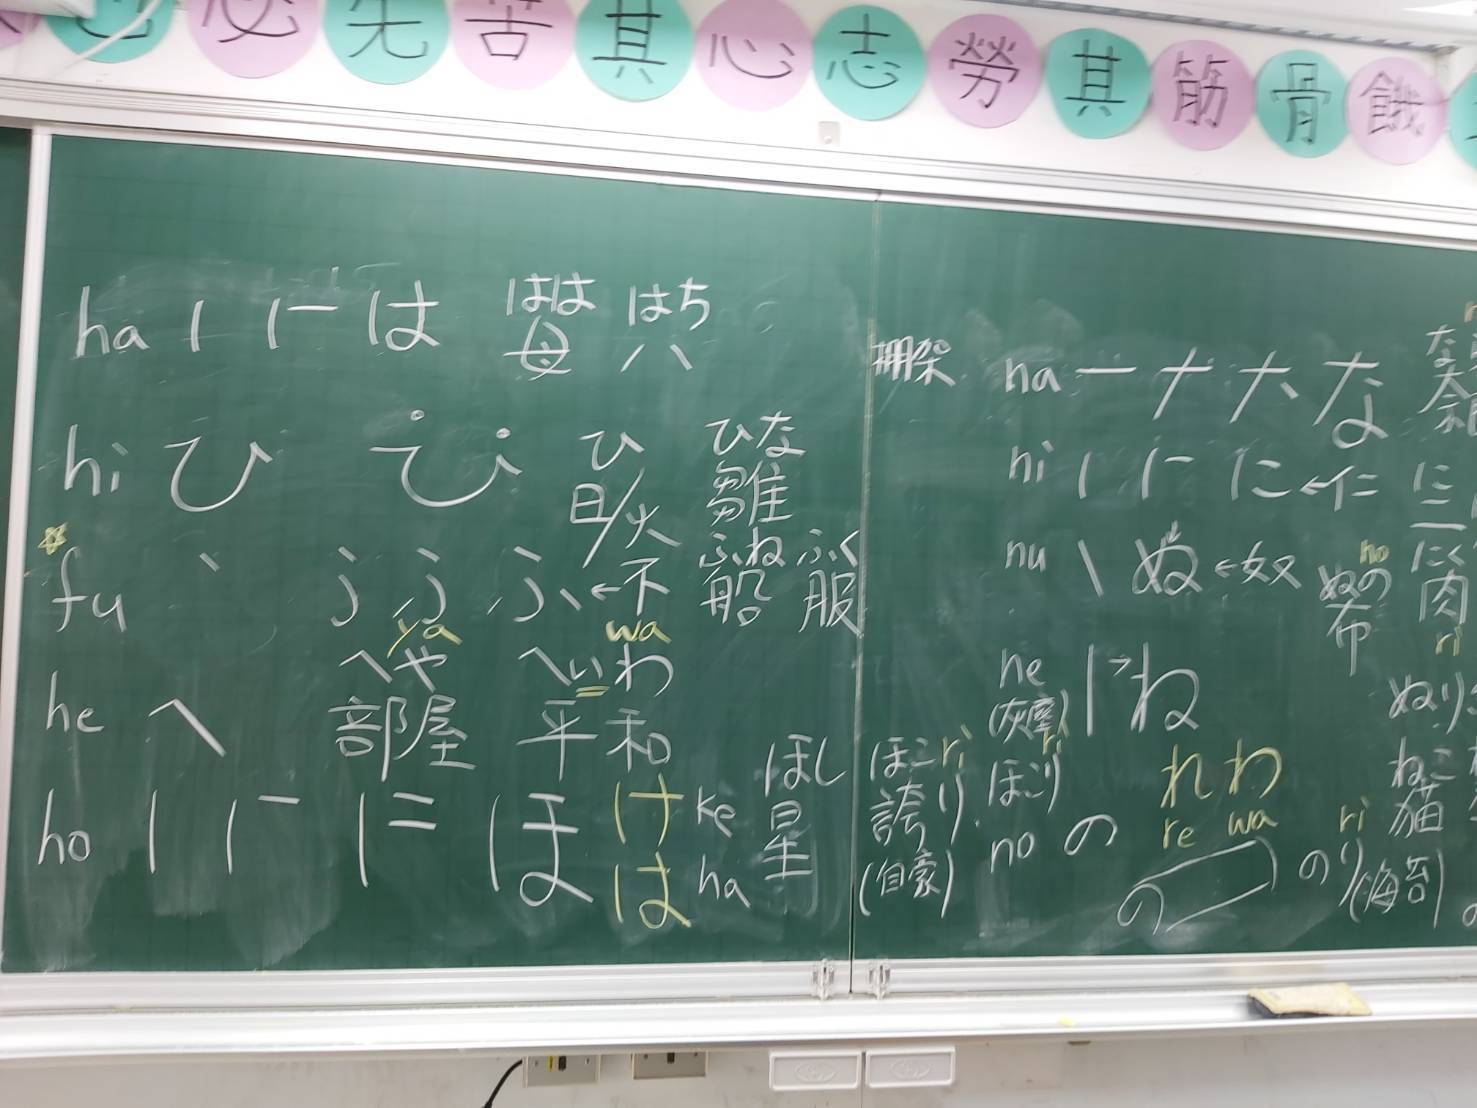 必先苦其心志勞其筋骨餓
ha は はは はち
母 八
hi ひ ひ ひ ひな
日/火 雛
fu ふ ← 不 ふねふく
船 服
ya wa
he へ へや へいわ
部屋 平和
ho ほ け ke ほし ほこri り
は ha 星 誇り
(自豪)
棚架
na 一 ナ な な
ni に ← 仁 に
二
nu ぬ ← 奴 ぬの no にく
布 肉 ri
ne ね ぬり
(灰塵)
ri
ほこり れ わ ねこ
re wa 猫
no の の のり ri
(海苔)